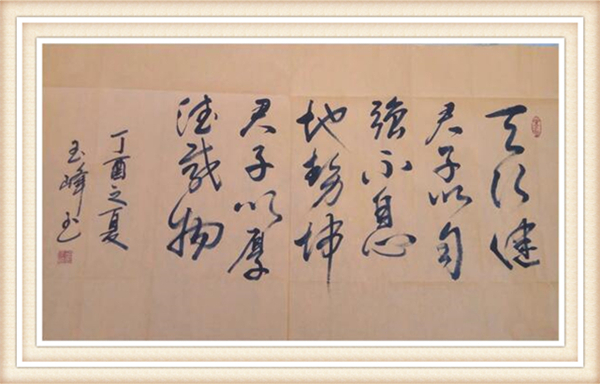 天行健
君子以自
強不息
地勢坤
君子以厚
德載物
丁酉之夏
玉峰书